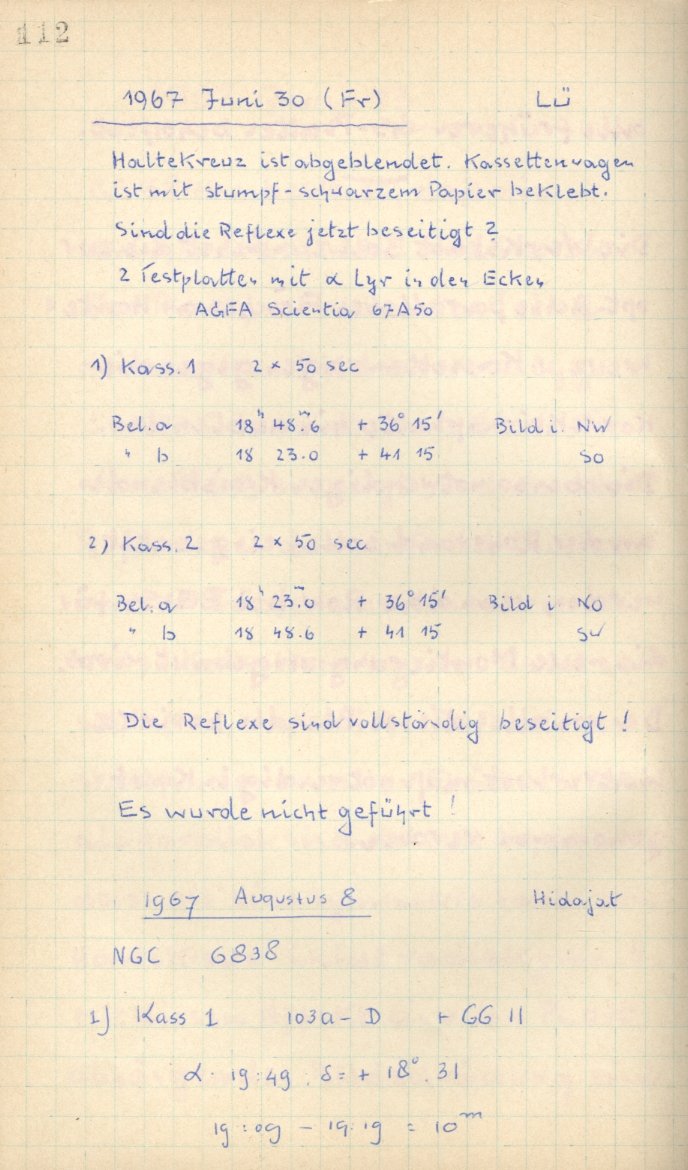 112
1967 Juni 30 (Fr) LÜ
Haltekreuz ist abgeblendet. Kassettenwagen
ist mit stumpf-schwarzem Papier beklebt.
Sind die Reflexe jetzt beseitigt ?
2 Testplatten mit α Lyr in den Ecken
AGFA Scientia 67A50
1) Kass. 1 2 × 50 sec
Bel. a 18ʰ 48ᵐ.6 + 36° 15' Bild i. NW
" b 18 23.0 + 41 15 SO
2) Kass. 2 2 × 50 sec
Bel. a 18ʰ 23ᵐ.0 + 36° 15' Bild i. NO
" b 18 48.6 + 41 15 SW
Die Reflexe sind vollständig beseitigt !
Es wurde nicht geführt !
1967 Augustus 8 Hidajat
NGC 6838
1) Kass 1 103a-D + GG 11
α. 19:49 . δ = + 18° . 31
19:09 - 19:19 = 10ᵐ